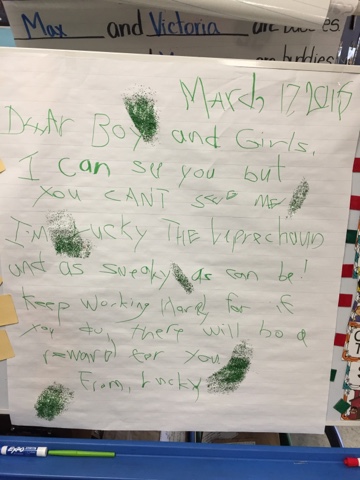 Max and Victoria are buddies.
buddies
March 17 2015
Dear Boy and Girls,
I can see you but
you CANT see me
I'm Lucky THE Leprechaun
and as sneaky as can be!
Keep working Hard, for if
you do, there will be a
reward for you
From, Lucky
EXPO